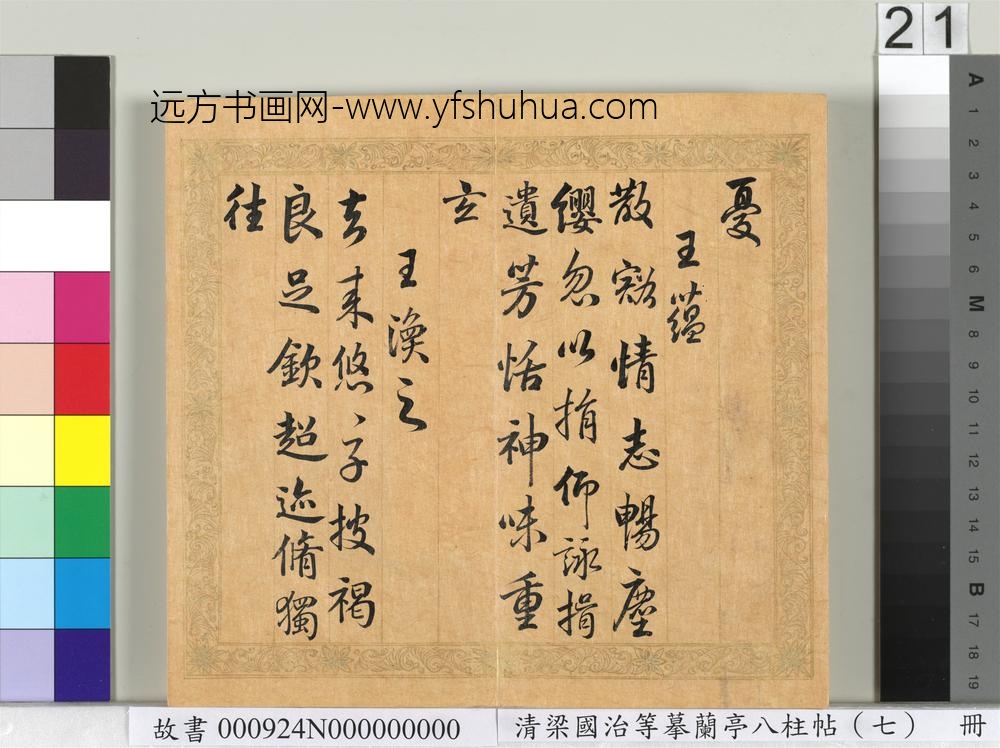 21
远方书画网-www.yfshuhua.com
憂
王蘊
散豁情志暢塵
纓忽以捐仰詠揖
遺芳恬神味重
玄
王渙之
去来悠丶子披褐
良足欽超迹脩獨
往
A 1 2 3 4 5 6 M 8 9 10 11 12 13 14 15 B 17 18 19
故書 000924N000000000
清梁國治等摹蘭亭八柱帖（七） 冊